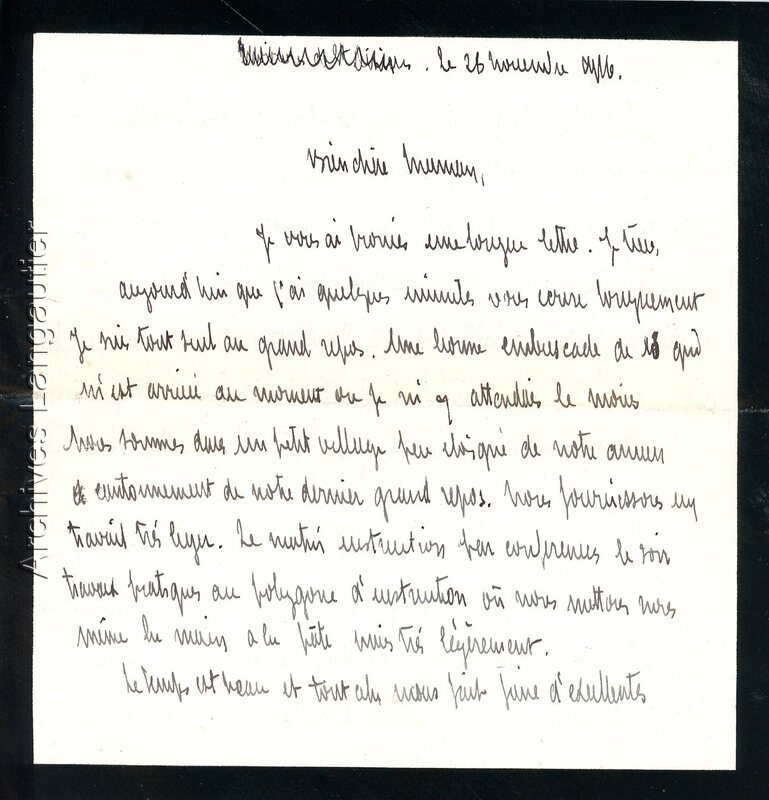 le 26 novembre 1916.
Bien chère Maman,
Je vous ai promis une longue lettre. Je viens
aujourd'hui que j'ai quelques minutes vous écrire longuement
Je suis tout seul au grand repos. Une bonne embuscade de 15 qui
m'est arrivée au moment où je m'y attendais le moins
Nous sommes dans un petit village peu éloigné de notre ancien
cantonnement de notre dernier grand repos. Nous fournissons un
travail très léger. Le matin instruction par conférences le soir
travaux pratiques au polygone d'instruction où nous mettons nous
même la main à la pâte mais très légèrement.
Le temps est beau et tout cela nous fait faire d'excellentes
Archives Langautier